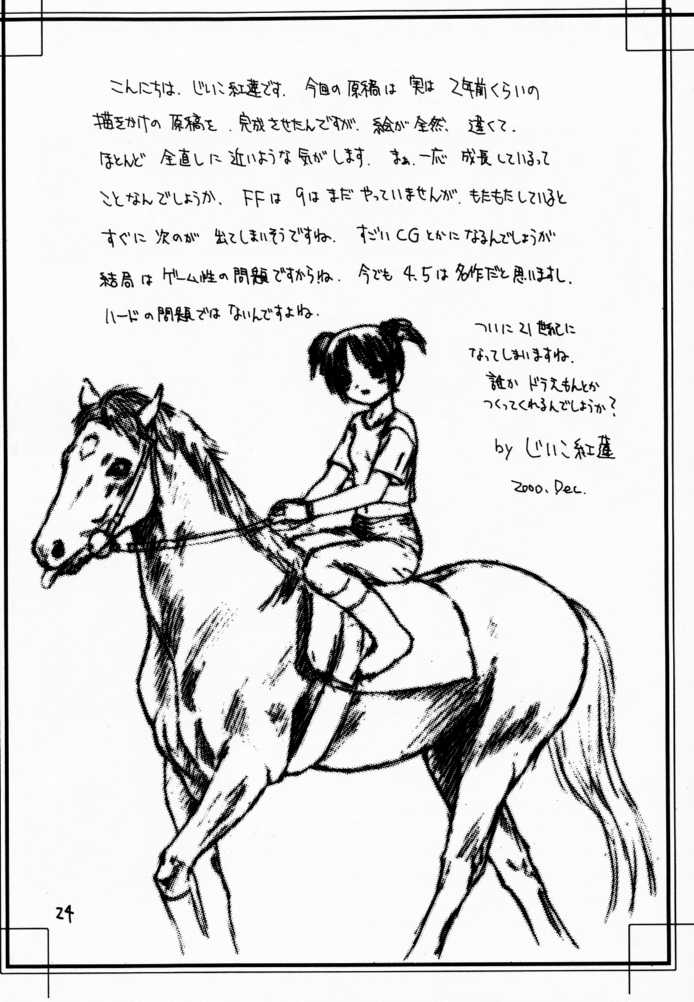 こんにちは、じいこ紅蓮です。今回の原稿は 実は 2年前くらいの
描きかけの 原稿を、完成させたんですが、絵が全然、違くて、
ほとんど 全直しに 近いような 気がします。まぁ、一応 成長しているって
ことなんでしょうか。FFは 9は まだ やっていませんが、もたもたしていると
すぐに 次のが 出てしまいそうですね。すごい CGとかに なるんでしょうが
結局は ゲーム性の問題ですからね。今でも 4、5は名作だと思いますし、
ハードの問題では ないんですよね。
ついに 21世紀に
なってしまいますね。
誰か ドラえもんとか
つくってくれるんでしょうか?
by じいこ紅蓮
2000. Dec.
24